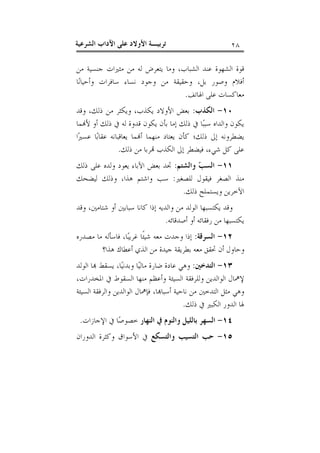 ٢٨ تربيـــة الأولاد على الآداب الشرعية
قوة الشهوة عند الشباب، وما يتعرض له من مثيرات جنسية من
أفلام وصور بل، وحقيقة من وجود نساء سافرات وأحيانًا
معاكسات على الهاتف.
١٠- الكذب: بعض الأولاد يكذب، ويكثر من ذلك، وقد
يكون والداه سببًا في ذلك إما بأن يكون قدوة له في ذلك أو لأنهما
يضطرونه إلى ذلك؛ كأن يعتاد منهما أنهما يعاقبانه عقابًا عسيرًا
على كل شيء، فيضطر إلى الكذب تهربا من ذلك.
١١- السب والشتم: تجد بعض الآباء يعود ولده على ذلك
منذ الصغر فيقول للصغير: سب واشتم هذا، وذلك ليضحك
الآخرين ويستملح ذلك.
وقد يكتسبها الولد من والديه إذا كانا سبابين أو شتامين، وقد
يكتسبها من رفقائه أو أصدقائه.
١٢- السرقة: إذا وجدت معه شيئًا غريبًا، فاسأله ما مصدره
وحاول أن تحقق معه بطريقة جيدة من الذي أعطاك هذا؟
١٣- التدخين: وهي عادة ضارة ماليًا وبدنيًا، يسقط بها الولد
لإهمال الوالدين وللرفقة السيئة وأعظم منها السقوط في المخدرات،
وهي مثل التدخين من ناحية أسبابها، فإهمال الوالدين والرفقة السيئة
لها الدور الكبير في ذلك.
١٤- السهر بالليل والنوم في النهار خصوصًا في الإجازات.
١٥- حب التسيب والتسكع في الأسواق وكثرة الدوران